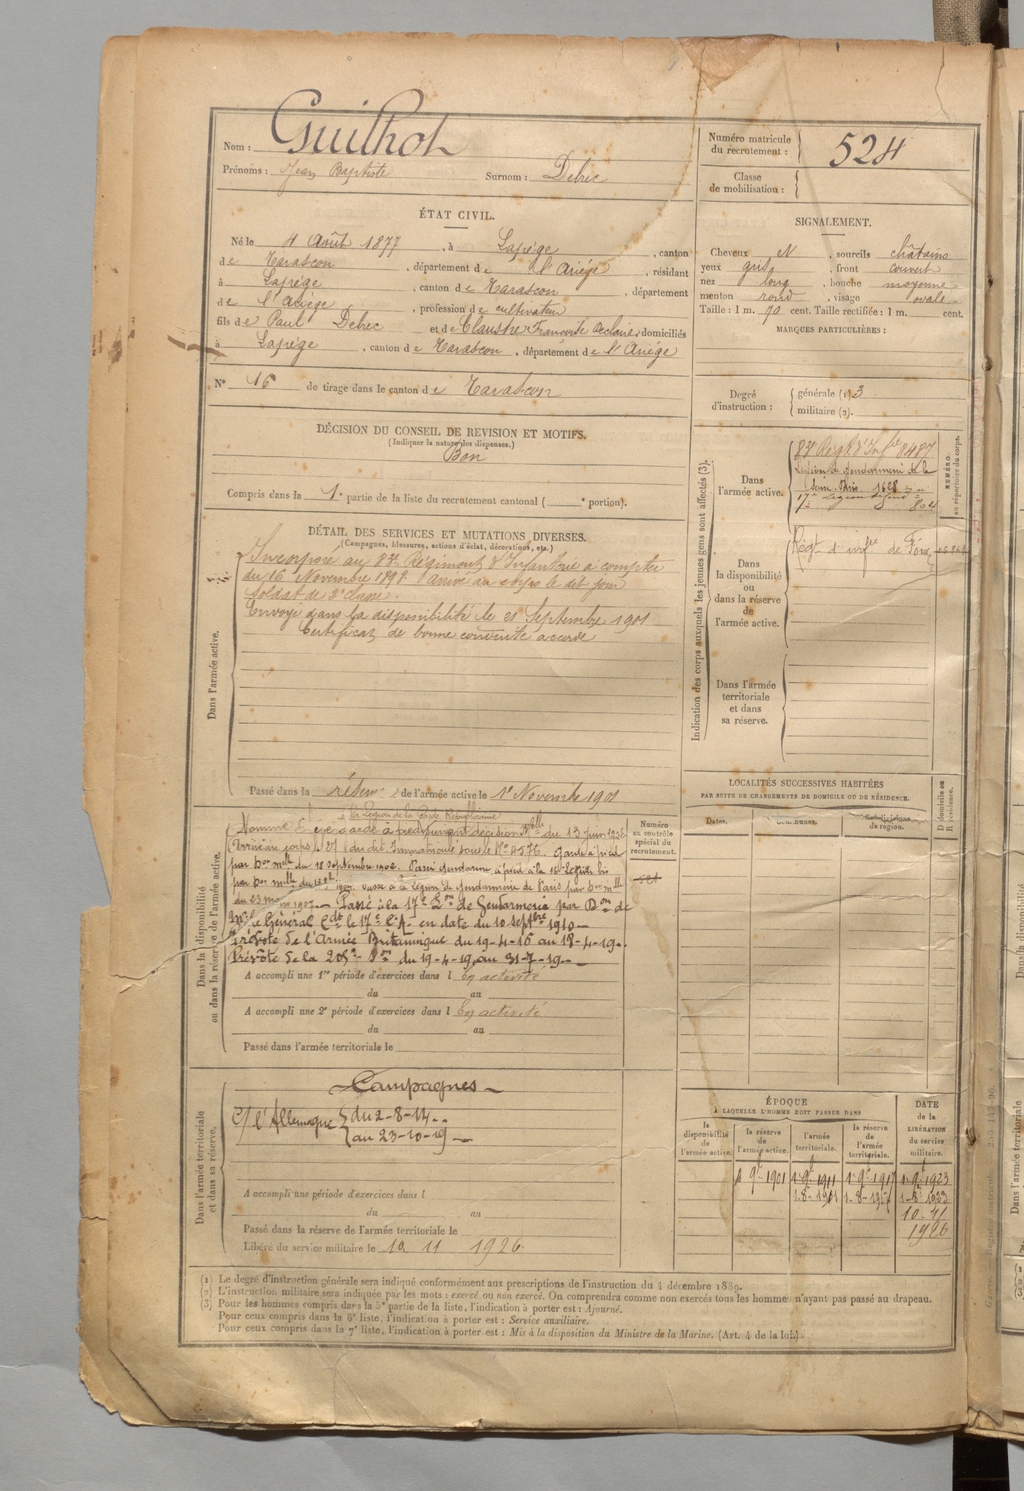 Nom : Guilhot
Prénoms : Jean Baptiste Surnom : Debec
ÉTAT CIVIL.
Né le 4 Août 1877, à Lapège, canton
de Tarascon, département de l'Ariège, résidant
à Lapège, canton de Tarascon, département
de l'Ariège, profession de cultivateur
fils de Paul Debec et de Claustre Françoise domiciliés
à Lapège, canton de Tarascon, département de l'Ariége
N° 16 de tirage dans le canton de Tarascon
DÉCISION DU CONSEIL DE REVISION ET MOTIFS.
(Indiquer la nature des dispenses.)
Bon
Compris dans la 1e partie de la liste du recrutement cantonal ( e portion).
DÉTAIL DES SERVICES ET MUTATIONS DIVERSES.
(Campagnes, blessures, actions d'éclat, décorations, etc.)
Dans l'armée active.
Incorporé au 83e Régiment d'Infanterie à compter
du 16 Novembre 1898. Arrivé au corps le dit jour
soldat de 2e classe.
Envoyé dans la disponibilité le 21 Septembre 1901
Certificat de bonne conduite accordé
Passé dans la réserve de l'armée active le 1er Novembre 1901
Dans la disponibilité
ou dans la réserve de l'armée active.
à la Légion de la Garde Républicaine
Nommé garde à pied suivant décision Mlle du 13 juin
Arrivé au corps le 27 du dit Immatriculé sous le No 4576. Garde à pied
par Don mlle du 18 septembre 1902. Passé gendarme à pied à la 16e Légion bis
par Don mlle du 1904. Passé à la Légion de Gendarmerie de Paris par Don mlle
du 23 mars 1907. — Passé à la 17e Lon de Gendarmerie par Don de
Mr le Général Cdt le 17e C.A. en date du 10 septbre 1910 —
Prévôté de l'Armée Britannique du 19-4-16 au 18-4-19.
Prévôté de la du 19-4-19 au 31-7-19 —
A accompli une 1re période d'exercices dans l En activité
du au
A accompli une 2e période d'exercices dans l En activité
du au
Passé dans l'armée territoriale le
Numéro
au contrôle
spécial du
recrutement.
Dans l'armée territoriale
et dans sa réserve.
Campagnes
C/ l'Allemagne { du 2-8-14
au 23-10-19 —
A accompli une période d'exercices dans l
du au
Passé dans la réserve de l'armée territoriale le
Libéré du service militaire le 10 11 1926.
Numéro matricule
du recrutement : 524
Classe
de mobilisation :
SIGNALEMENT.
Cheveux et N, sourcils châtains
yeux gris, front couvert
nez long, bouche moyenne
menton rond, visage ovale
Taille : 1 m. 70 cent. Taille rectifiée : 1 m. cent.
MARQUES PARTICULIÈRES :
Degré
d'instruction :
générale (1) 3
militaire (2).
Indication des corps auxquels les jeunes gens sont affectés (3).
NUMÉRO
au répertoire du corps.
Dans
l'armée active.
83e Régt d'Infie 8487
Légion de gendarmerie de la
Seine Paris. 1628
17e Légion 804
Dans
la disponibilité
ou
dans la réserve
de
l'armée active.
Régt d'infie de Foix
Dans l'armée
territoriale
et dans
sa réserve.
LOCALITÉS SUCCESSIVES HABITÉES
PAR SUITE DE CHANGEMENTS DE DOMICILE OU DE RÉSIDENCE.
Dates.
Communes.
Subdivisions
de région.
D domicile ou
R résidence.
ÉPOQUE
À LAQUELLE L'HOMME DOIT PASSER DANS
DATE
de la
LIBÉRATION
du service
militaire.
la
disponibilité
de
l'armée active.
la réserve
de
l'armée active.
l'armée
territoriale.
la réserve
de
l'armée
territoriale.
1 9e 1901 1 9e 1911 1 9e 1917 1 9e 1923
10-11
1926
(1) Le degré d'instruction générale sera indiqué conformément aux prescriptions de l'instruction du 4 décembre 1889.
(2) L'instruction militaire sera indiquée par les mots : exercé ou non exercé. On comprendra comme non exercés tous les hommes n'ayant pas passé au drapeau.
(3) Pour les hommes compris dans la 5e partie de la liste, l'indication à porter est : Ajourné.
Pour ceux compris dans la 6e liste, l'indication à porter est : Service auxiliaire.
Pour ceux compris dans la 7e liste, l'indication à porter est : Mis à la disposition du Ministre de la Marine. (Art. 4 de la loi.)